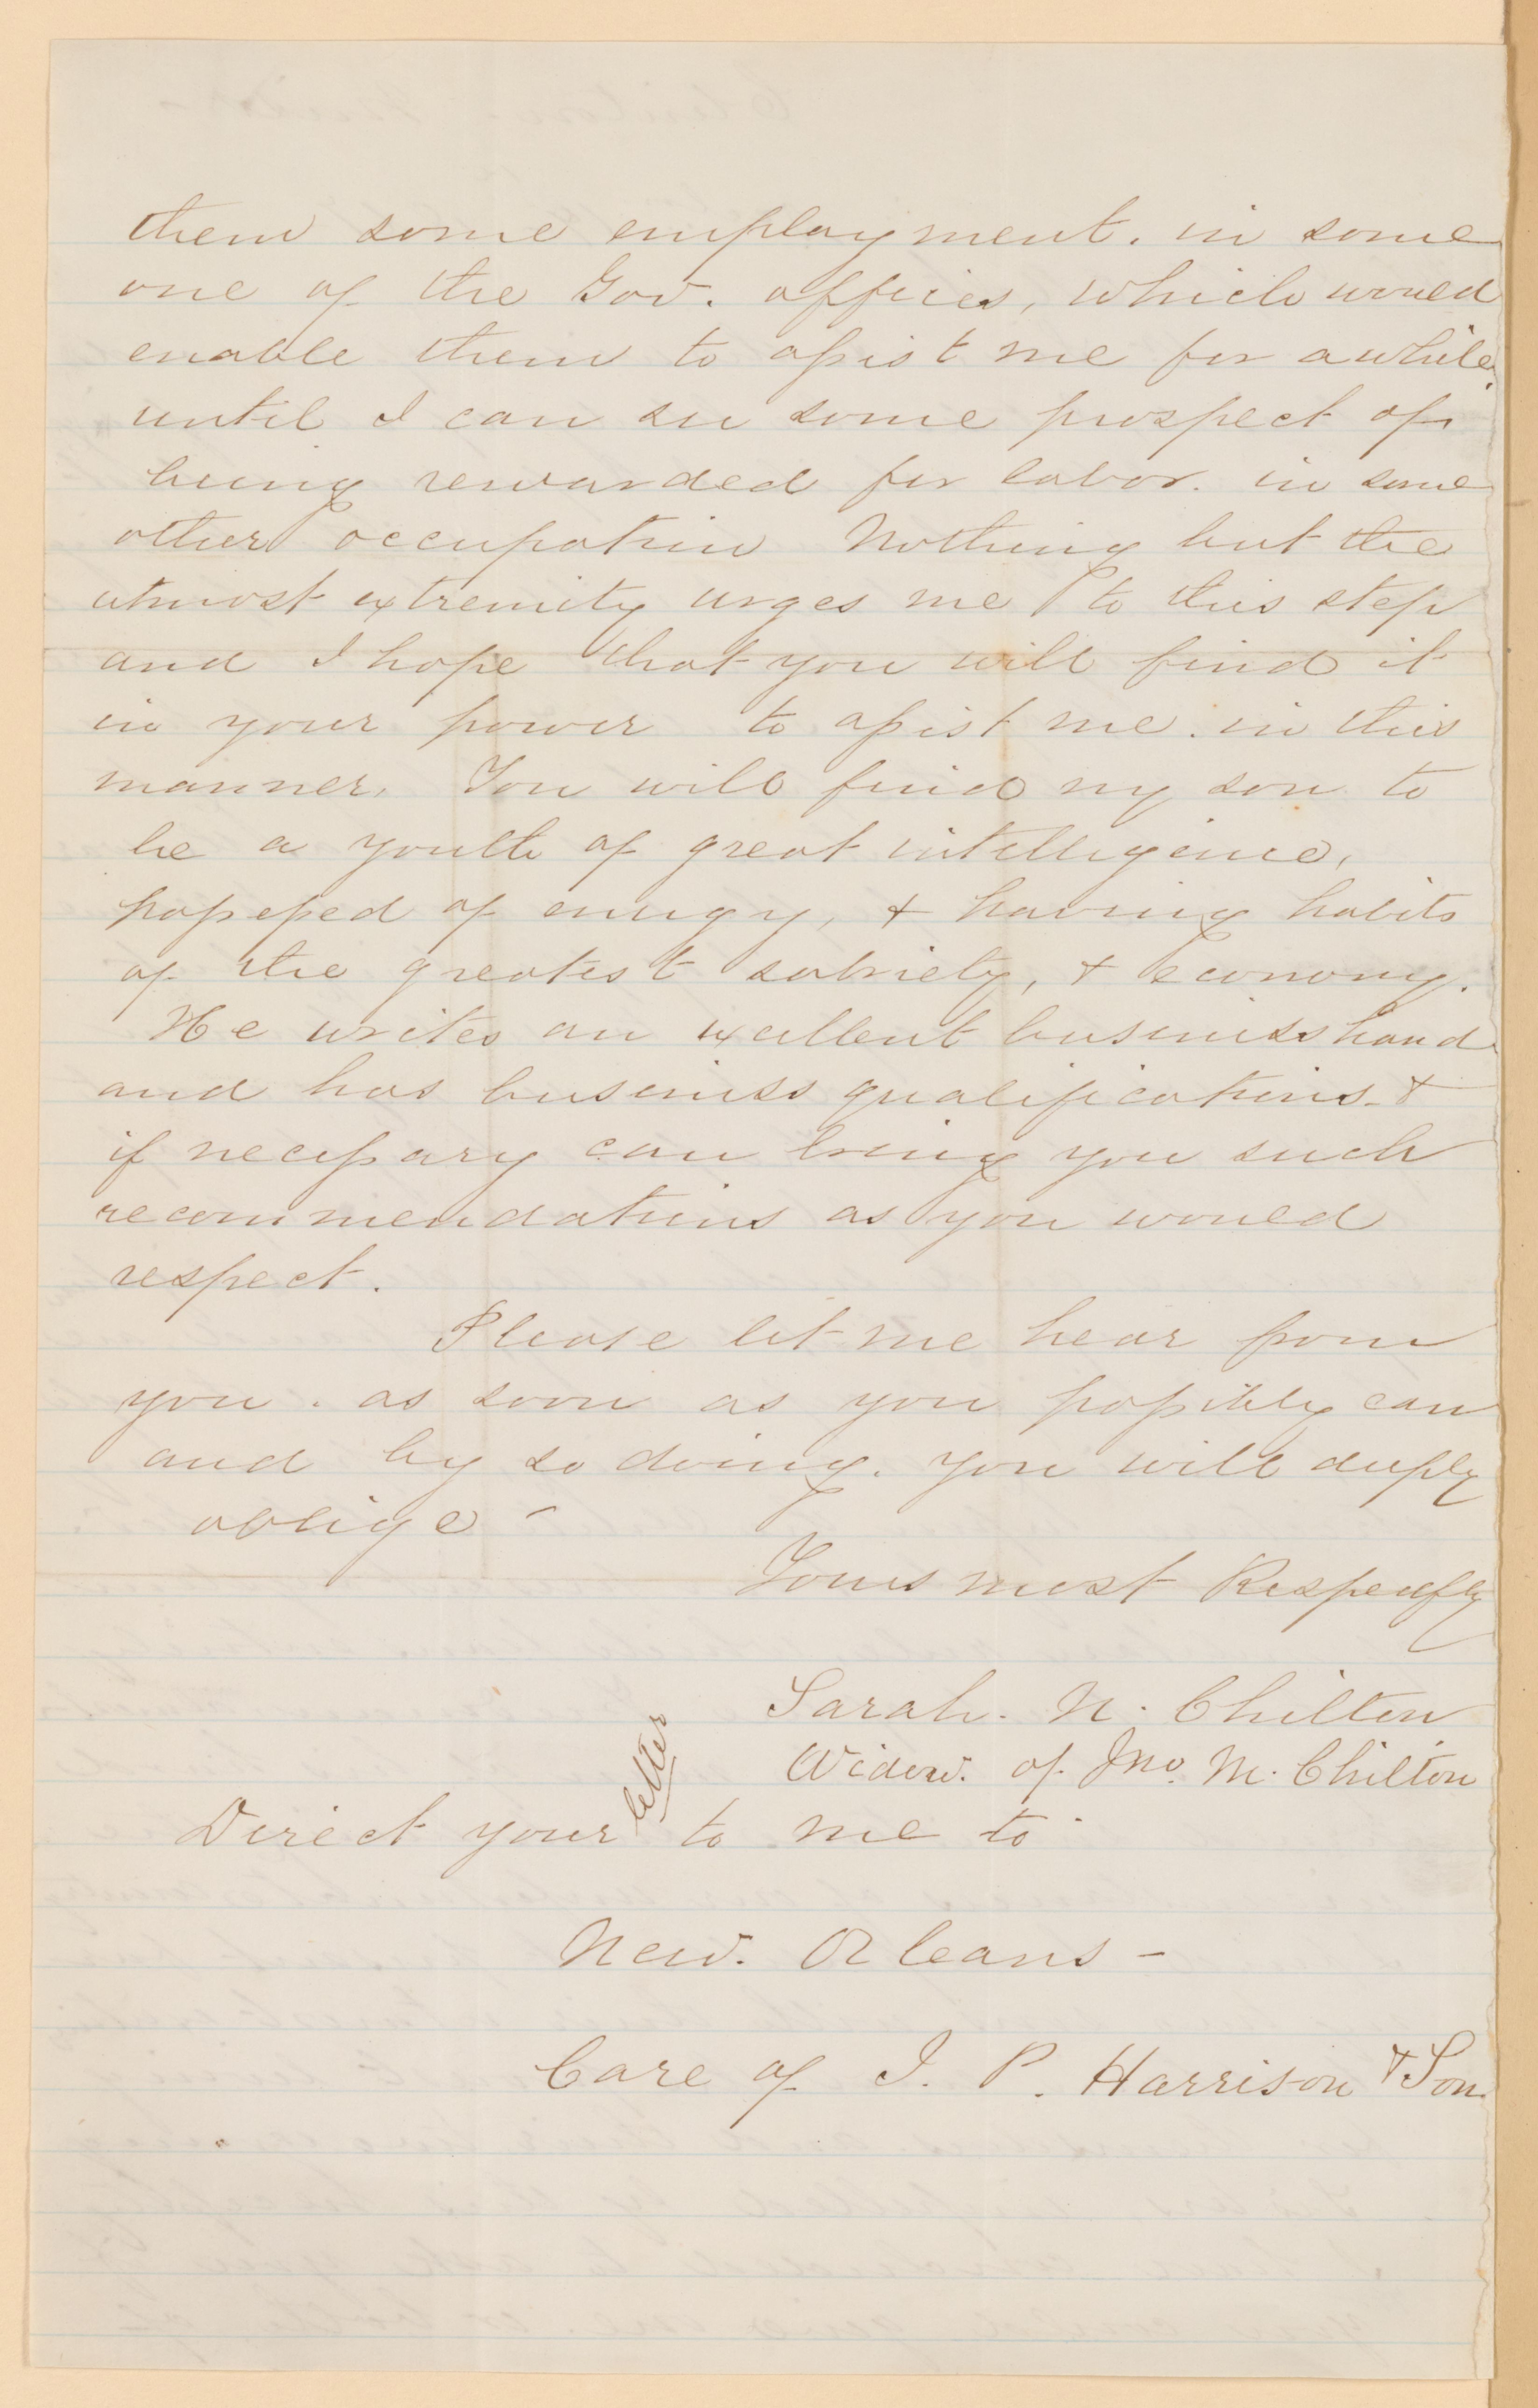 them some employment. in some
one of the Gov. offices, which would
enable them to assist me for a while,
until I can see some prospect of
being rewarded for labor. in some
other occupation Nothing but the
utmost extremity urges me to this step
and I hope that you will find it
in your power to assist me. in this
manner. You will find my son to
be a youth of great intelligence,
possessed of energy, & having habits
of the greatest sobriety, & economy.
He writes an excellent business hand
and has business qualifications. &
if necessary can bring you such
recommendations as you would
respect.
Please let me hear from
you. as soon as you possibly can
and by so doing. you will deeply
oblige -
Yours most Respectfly
Sarah. N. Chilton
Widow. of. Jno. M. Chilton
Direct your letter to me to
New. Orleans -
Care of J. P. Harrison & Son.